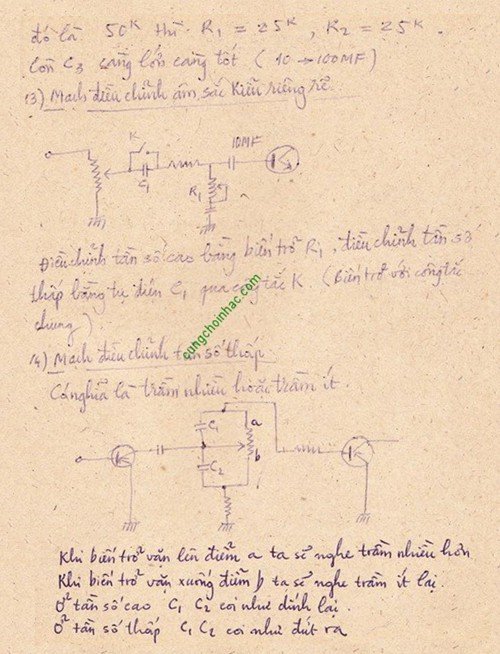 đó là 50K thì R1 = 25K, R2 = 25K.
Còn C3 càng lớn càng tốt (10 → 100MF)
13) Mạch điều chỉnh âm sắc kiểu riêng rẽ.
K
10MF
C1
R1
Điều chỉnh tần số cao bằng biến trở R1, điều chỉnh tần số
thấp bằng tụ điện C1 qua công tắc K. (Biến trở với công tắc
chung)
cungchoinhac.com
14) Mạch điều chỉnh tần số thấp
Có nghĩa là trầm nhiều hoặc trầm ít.
C1
a
b
C2
Khi biến trở vặn lên điểm a ta sẽ nghe trầm nhiều hơn
Khi biến trở vặn xuống điểm b ta sẽ nghe trầm ít lại.
Ở tần số cao C1 C2 coi như dính lại.
Ở tần số thấp C1 C2 coi như đứt ra